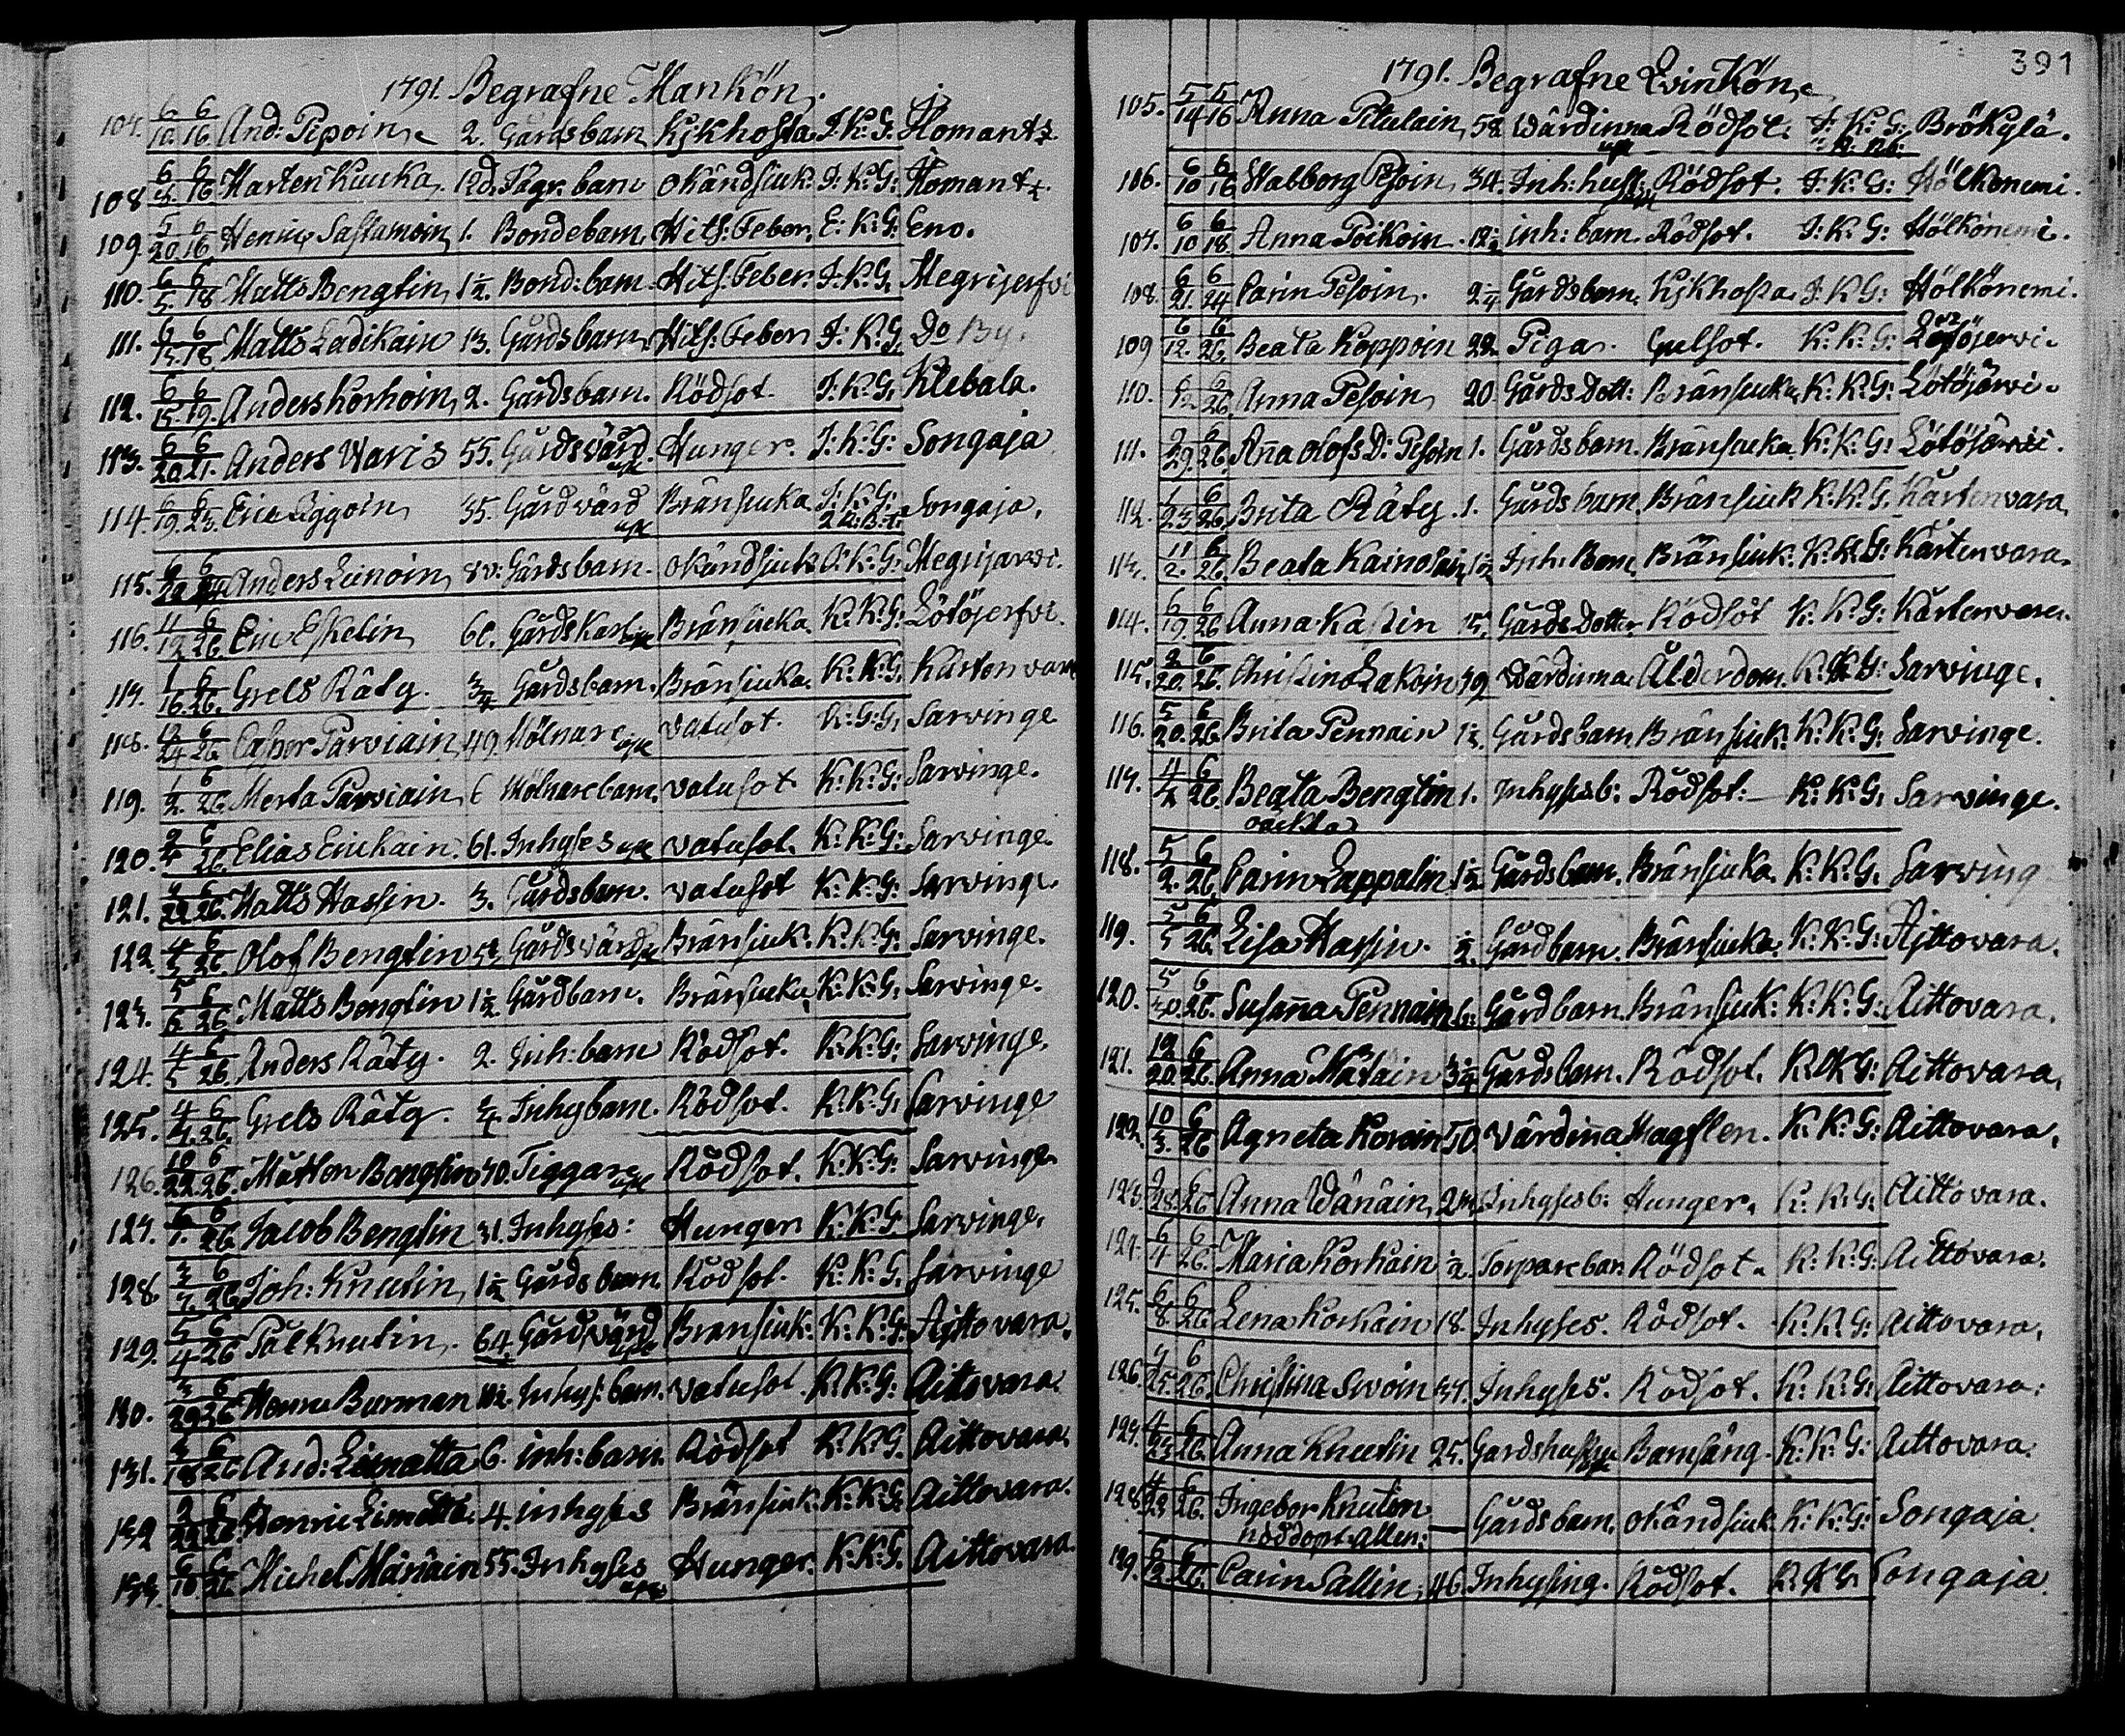 1791. Begrafne Mankön.
107. 6/10. 6/16. And: Pesoin, 2. Gårdsbarn Kjkhosta. I: K: G: Ilomants
108 6/4. 6/16 Marten Kuuka, 12d. Tägr. barn okändsiuk: I: K: G: Ilomants.
109. 5/20. 6/16 Henric Sastamoin, 1. Bondebarn, Hits: Feber, E: K: G: Eno.
110. 6/5. 6/18 Matts Bengtin, 1½. Bond: barn. Hits: Feber. I: K: G, Megrijerfvi
111. 6/13. 6/18. Matts Ladikain 13. Gårdsbarn, Hits: Feber I: K: G, Do By.
112. 6/15. 6/19. Anders Korhoin, 2. Gårdsbarn. Rödsot. I: K: G, Kuebala.
113. 6/20. 6/21. Anders Waris 55. Gårdsvärd. upl Hunger. I: K: G: Songaja
114. 6/19. 6/23. Eric Eggoin, 35. Gårdvärd upl Bränsiuka I: K: G: Songaja.
115. 6/20 6/24 Anders Leinoin, 8v: Gårdsbarn. okändsiuk I: K: G: Megrijarvi.
116. 11/12. 6/26. Eric Eskelin, 60. Gårds Karl Bränsiuka. K: K: G: Lötöjerfvi.
117. 1/16. 6/26. Grels Räty. ¾ Gårdsbarn. Bränsiuka. K: K: G, Kårtenvara
118. 12/24 6/26 Casper Parviain, 49. Mölnare upl vatusot. K: G: G, Sarvinge
119. 1/2. 6/26. Merta Parviain, 6 Mölnarebarn. vatusot K: K: G: Sarvinge.
120. 2/4 6/26. Elias Eurikain. 61. Inhyses upl vatusot. K: K: G: Sarvinge.
121. 6/26. Matts Hassin. 3. Gårdsbarn. vatusot K: K: G: Sarvinge.
122. 4/5 6/26. Olof Bengtin Gårdsvärd upl Bränsiuk. K: K: G: Sarvinge.
123. 5/6 6/26. Matts Bengtin 1½. Gårdbarn. Bränsiuka, K: K: G, Sarvinge.
124. 4/5 6/26. Anders Räty. 2. Inh: barn Rödsot. K: K: G: Sarvinge.
125. 4/4. 6/26. Grels Räty. ¾ Inhybarn. Rödsot. K: K: G, Sarvinge
126. 10/22. 6/26. Mårten Bengtin 70. Tiggare upl Rödsot. K: K: G: Sarvinge
127. 6/1. 6/26. Jacob Bengtin 31. Inhyses: Hunger K: K: G. Sarvinge.
128 3/7. 6/26. Joh: Knutin, 1½ Gårdsbarn. Rödsot. K: K: G, Sarvinge
129. 5/4 6/26 Pål Knutin. 64. Gårdvärd upl Bränsiuk: K: K: G: Ajttovara.
130. 3/29 6/26 Burman Inhys: barn. vatusot K: K: G: Aittovara.
131. 6/26 And: Limatta 6. inh: barn. Rödsot K: K: G. Aittovara.
132 2/22 6/26. Henric Limatta. 4. inhyses Bränsiuk: K: K: G. Aittovara.
133. 6/10. 6/26. Michel Mänäin 55. Inhyses upl Hunger. K: K: G. Aittovara.
391
1791. Begrafne Qvinkön.
105. 5/14 5/16 Anna Pitulain, 58. Wärdinna upl Rödsot. I: K: G: Brökylä.
106. 6/10 6/16 Walborg Pesoin, 34. Inh: hustr: Rödsot. I: K: G: Hölkönemi.
107. 6/10 6/18. Anna Poikoin. 12. inh: barn. Rödsot. I: K: G: Hölkönemi.
108. 6/21. 6/24 Carin Pesoin, 2¼ Gårdsbarn. Kjkhosta. I: K: G: Hölkönemi.
109 6/12. 6/26. Beata Koppoin 22. Piga. Gulsot. K: K: G: Lötöjervi.
110. 6/12 6/26. Anna Pesoin, 20. Gårds Dott: Bränsiuka. K: K: G: Lötöjärvi.
111. 2/29. 6/26. Ana Olofs D: Pesoin 1. Gårdsbarn. Bränsiuka. K: K: G: Lötöjärvi.
112. 1/23. 6/26. Brita Räty. 1. Gårdsbarn. Bränsiuk K: K: G. Kårtenvara.
113. 11/2. 6/26. Beata Kainolain 1½. Inh: Barn. Bränsiuk. K: K: G: Kårtenvara.
114. 6/19. 6/26 Anna Kassin 15. Gårds Dotter. Rödsot K: K: G: Kårtenvara.
115. 2/20. 6/26. Christina Lakoin 72 Wärdinna. Ålderdom. K: K: G: Sarvinge.
116. 5/20. 6/26. Brita Pennain 1½. Gårdsbarn. Bränsiuk. K: K: G: Sarvinge.
117. 4/4 6/26. Beata Bengtin 1. Inhyses b: Rödsot. K: K: G. Sarvinge.
oäckta
118. 5/2. 6/26. Carin Lappalin 1½ Gårdsbarn. Bränsiuka. K: K: G. Sarving
119. 5/5 6/26. Lisa Hassin. ½. Gårdbarn. Bränsiuka. K: K: G: Ajttovara.
120. 5/30. 6/26. Susana Pennain 6. Gårdbarn. Bränsiuk: K: K: G: Aittovara.
121. 12/20. 6/26. Anna Mätäin 3¼. Gårdsbarn. Rödsot. K: K: G: Aittovara.
122. 10/3. 6/26 Agneta Korain 50. Värdinna. Magplen. K: K: G: Aittovara.
123. 2/28. 6/26 Anna Wänäin, 2m. Inhyses b: Hunger. K: K: G. Aittovara.
124. 6/4 6/26. Maria Korhain ½. Torparebarn Rödsot. K: K: G: Aittovara.
125. 6/8. 6/26 Lena Korhain 18. Inhyses. Rödsot. K: K: G: Aittovara.
126 6/26. Christina Swoin 37. Inhyses. Rödsot. K: K: G: Aittovara.
127. 4/23 6/26. Anna Knutin 25. Gårdshustru Barnsäng. K: K: G: Aittovara.
128. 4/22 6/26. Ingebor Knutin — Gårdsbarn. okändsiuk. K: K: G: Songaja.
nöddopt allen:
129. 6/12. 6/26. Carin Sallin, 46. Inhysing. Rödsot. K: K: G. Songaja.